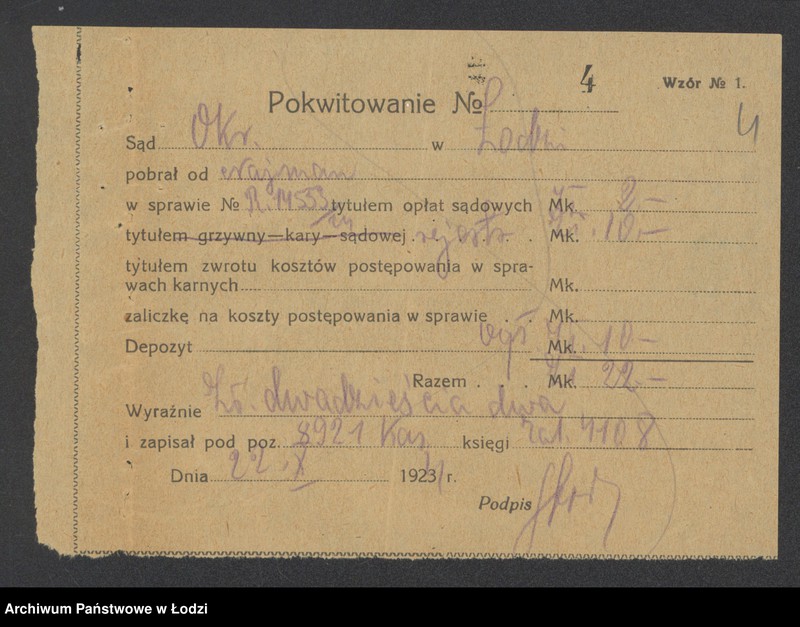 4
Wzór № 1.
4
Pokwitowanie №
Sąd Okr. w Łodzi
pobrał od
w sprawie № R. 14553/24 tytułem opłat sądowych Mk. Zł 2.—
tytułem grzywny—kary—sądowej rejestr Mk. Zł. 10.—
tytułem zwrotu kosztów postępowania w spra-
wach karnych Mk.
zaliczkę na koszty postępowania w sprawie . . Mk.
Depozyt ogł. Mk. Zł. 10—
Razem . . . Mk. Zł 22.—
Wyraźnie Zł. dwadzieścia dwa
i zapisał pod poz. 8921 Kas księgi zal. 4108
Dnia 22.X 19234 r.
Podpis
Archiwum Państwowe w Łodzi